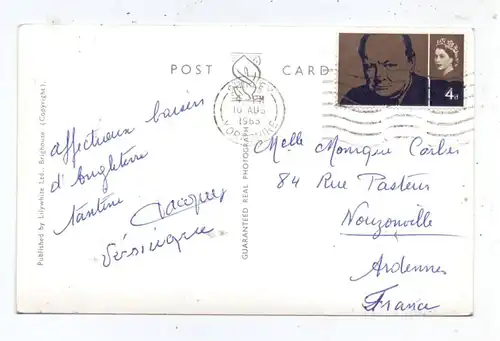 POST CARD
4d
10 AUG
1965
YORKSHIRE
affectueux baisers
d'Angleterre
tantine Jacques
Véronique
Melle Monique Corbis
84 Rue Pasteur
Nouzonville
Ardennes
France
Published by Lilywhite Ltd., Brighouse (Copyright).
GUARANTEED REAL PHOTOGRAPH